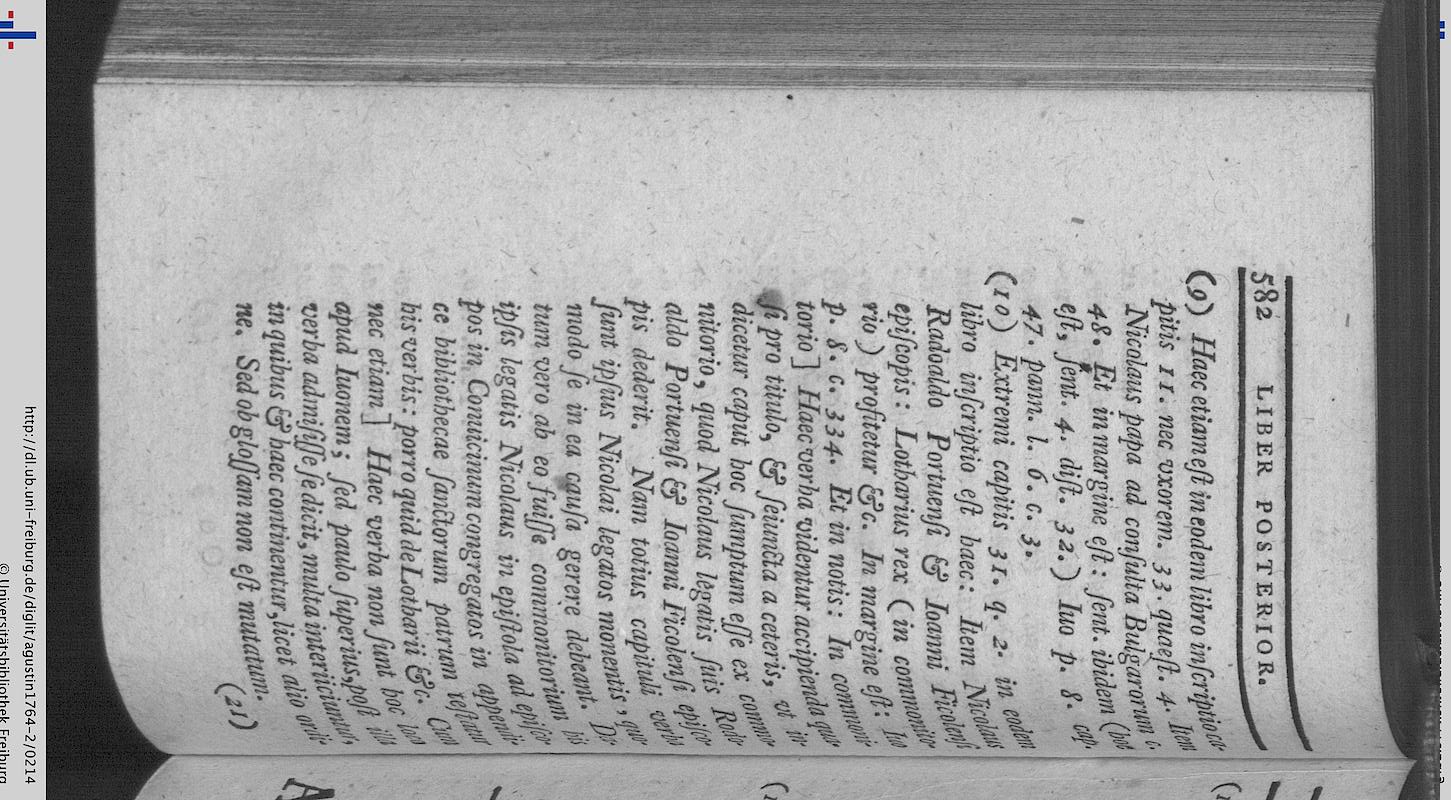 582 LIBER POSTERIOR.
(9) Haec etiam est in eodem libro inscriptio ca-
pitis 11. nec vxorem. 33. quaest. 4. Item
Nicolaus papa ad consulta Bulgarorum c.
48. Et in margine est: sent. ibidem (hoc
est, sent. 4. dist. 32.) Iuo p. 8. cap.
47. pann. l. 6. c. 3.
(10) Extremi capitis 31. q. 2. in eodem
libro inscriptio est haec: Item Nicolaus
Radoaldo Portuensi & Ioanni Ficolensi
episcopis: Lotharius rex (in commonito-
rio) profitetur &c. In margine est: Iuo
p. 8. c. 334. Et in notis: In commoni-
torio] Haec verba videntur accipienda qua-
si pro titulo, & seiuncta a ceteris, vt in-
dicetur caput hoc sumptum esse ex commo-
nitorio, quod Nicolaus legatis suis Rodo-
aldo Portuensi & Ioanni Ficolensi episco-
pis dederit. Nam totius capituli verba
sunt ipsius Nicolai legatos monentis, quo-
modo se in ea causa gerere debeant. Da-
tum vero ab eo fuisse commonitorium his
ipsis legatis Nicolaus in epistola ad episco-
pos in Conuicinum congregatos in appendi-
ce bibliothecae sanctorum patrum testatur
his verbis: porro quid de Lotharii &c. Quod
nec etiam] Haec verba non sunt hoc loco
apud Iuonem; sed paulo superius, post illa
verba admisisse se dicit, multa interiiciuntur,
in quibus & haec continentur, licet alio ordi-
ne. Sed ob glossam non est mutatum.
(21)
http://dl.ub.uni-freiburg.de/diglit/agustin1764-2/0214
© Universitätsbibliothek Freiburg